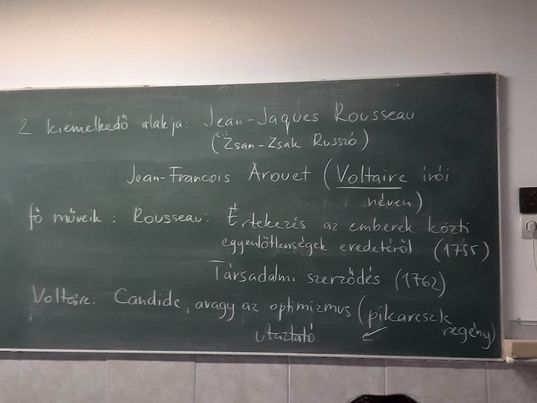 2 kiemelkedő alakja: Jean-Jaques Rousseau
(Zsan-Zsak Russzó)
Jean-Francois Arouet (Voltaire írói
néven)
fő műveik: Rousseau: Értekezés az emberek közti
egyenlőtlenségek eredetéről (1755)
Társadalmi szerződés (1762)
Voltaire: Candide, avagy az optimizmus (pikareszk
regény)
utaztató